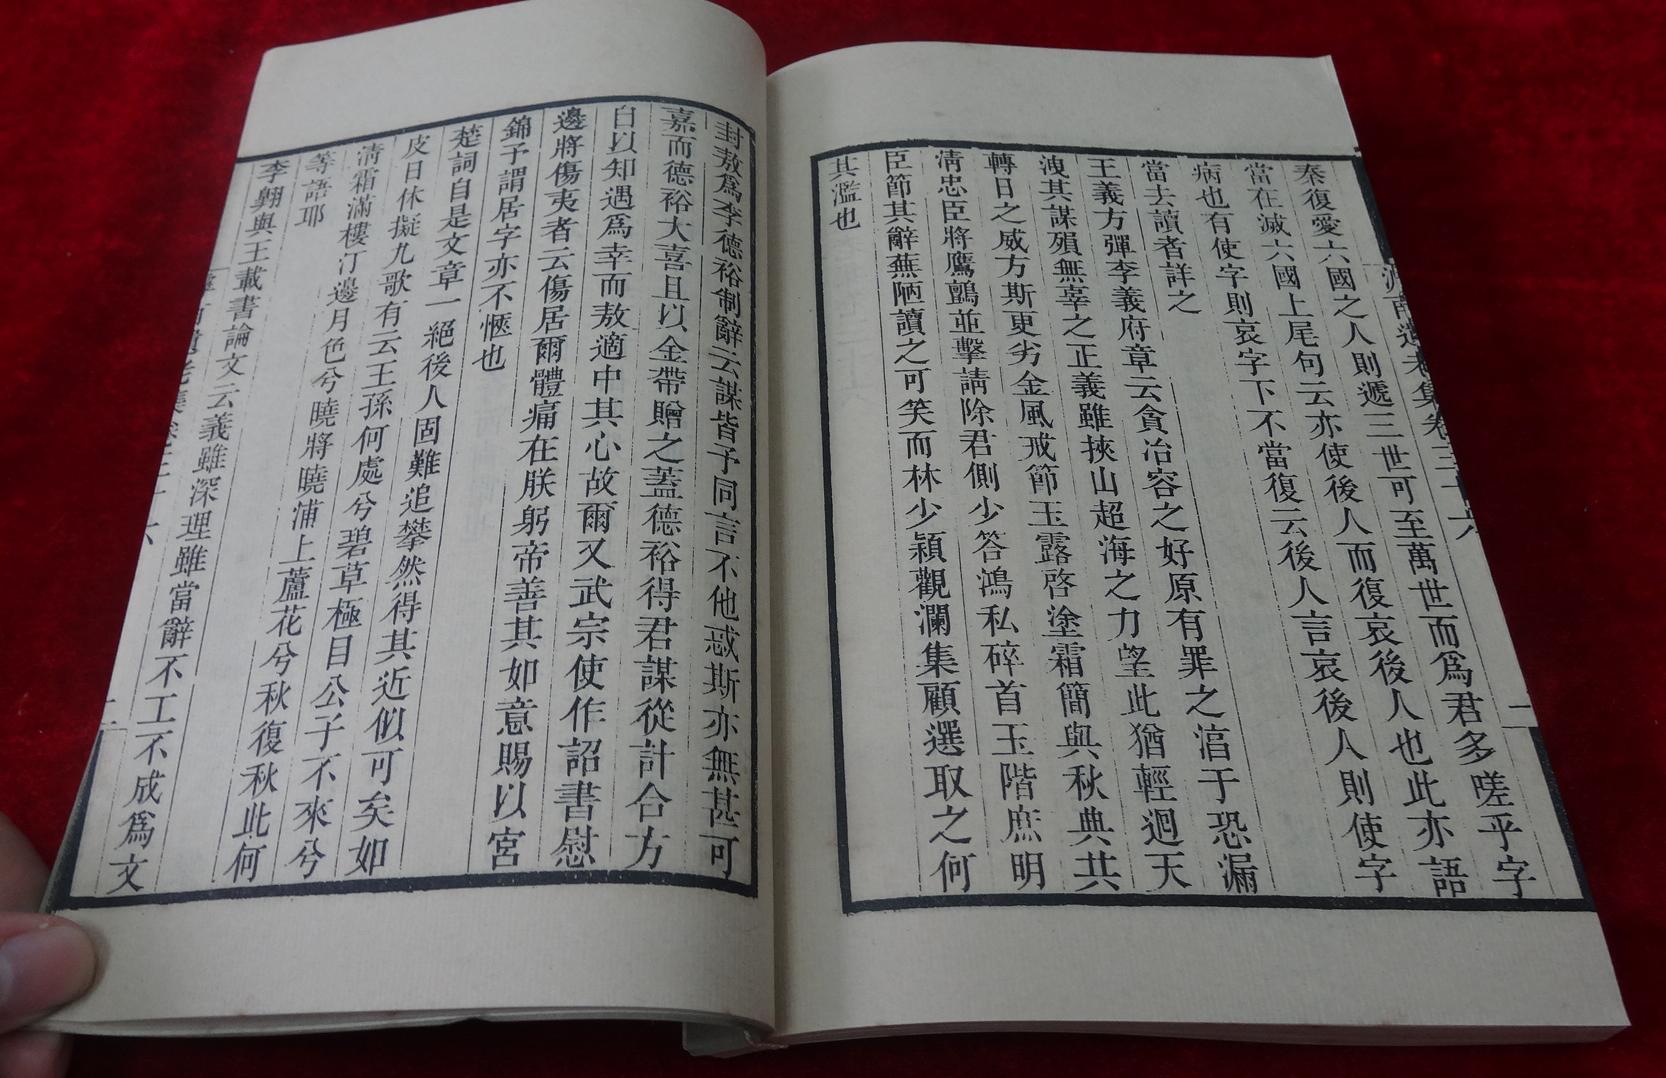 秦復愛六國之人則遞三世可至萬世而爲君多嗟乎字
當在滅六國上尾句云亦使後人而復哀後人也此亦語
病也有使字則哀字下不當復云後人言哀後人則使字
當去讀者詳之
王義方彈李義府章云貪冶容之好原有罪之淳于恐漏
洩其謀殞無辜之正義雖挾山超海之力望此猶輕迴天
轉日之威方斯更劣金風戒節玉露啓塗霜簡與秋典共
清忠臣將鷹鸇並擊請除君側少答鴻私碎首玉階庶明
臣節其辭蕪陋讀之可笑而林少穎觀瀾集顧選取之何
其濫也
滹南遺老集卷三十六
二
封敖爲李德裕制辭云謀皆予同言不他惑斯亦無甚可
嘉而德裕大喜且以金帶贈之蓋德裕得君謀從計合方
自以知遇爲幸而敖適中其心故爾又武宗使作詔書慰
邊將傷夷者云傷居爾體痛在朕躬帝善其如意賜以宮
錦予謂居字亦不愜也
楚詞自是文章一絕後人固難追攀然得其近似可矣如
皮日休擬九歌有云王孫何處兮碧草極目公子不來兮
清霜滿樓汀邊月色兮曉將曉浦上蘆花兮秋復秋此何
等語耶
李翺與王載書論文云義雖深理雖當辭不工不成爲文
二